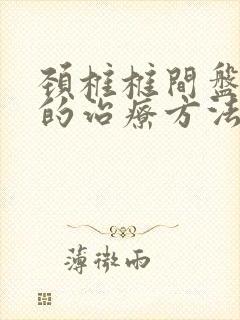 頸椎椎間盤
的治療方法
薄微雨